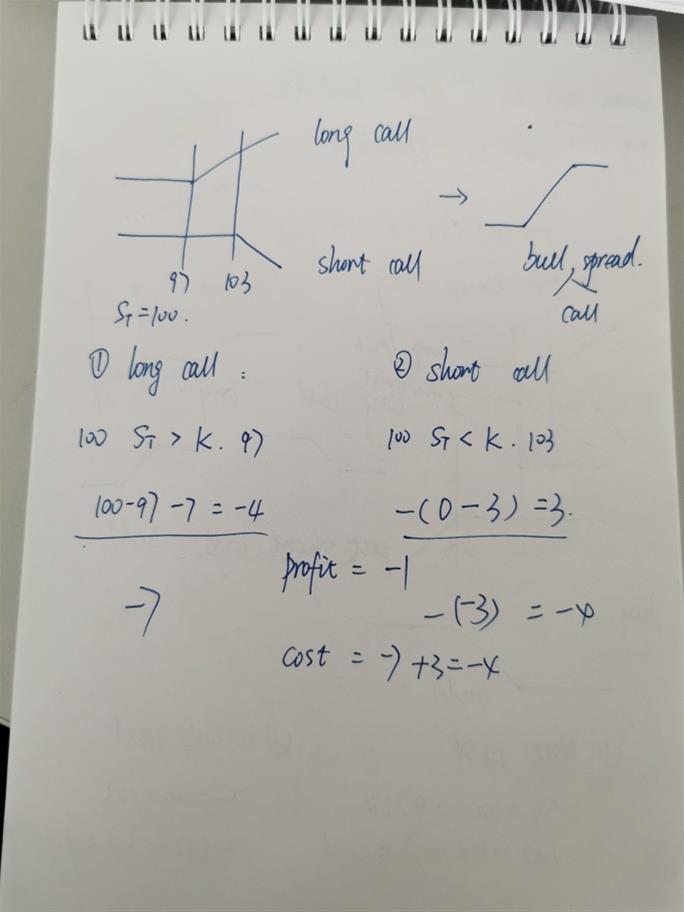 long call
→
short call
bull spread.
call
97 103
S_T=100.
① long call :
② short call
100 S_T > K. 97
100 S_T < K. 103
100-97-7 = -4
-(0-3) =3.
profit = -1
-7
-(-3) = -4
cost = -7+3=-4